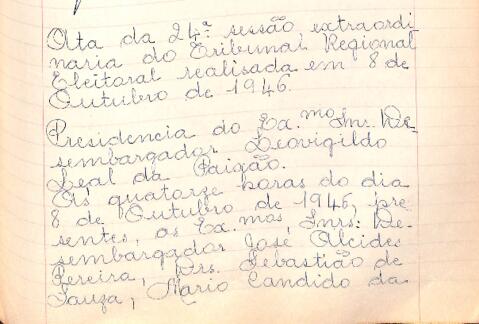 Ata da 24.ª sessão extraordi
naria do Tribunal Regional
Eleitoral realisada em 8 de
Outubro de 1946.
Presidencia do Ex.mo Snr. De
sembargador Deovigildo
Leal da Paixão.
Ás quatorze horas do dia
8 de Outubro de 1946, pre
sentes, os Ex.mos, Snrs: De-
sembargador José Alcides
Pereira, Drs. Sebastião de
Souza, Mario Candido da